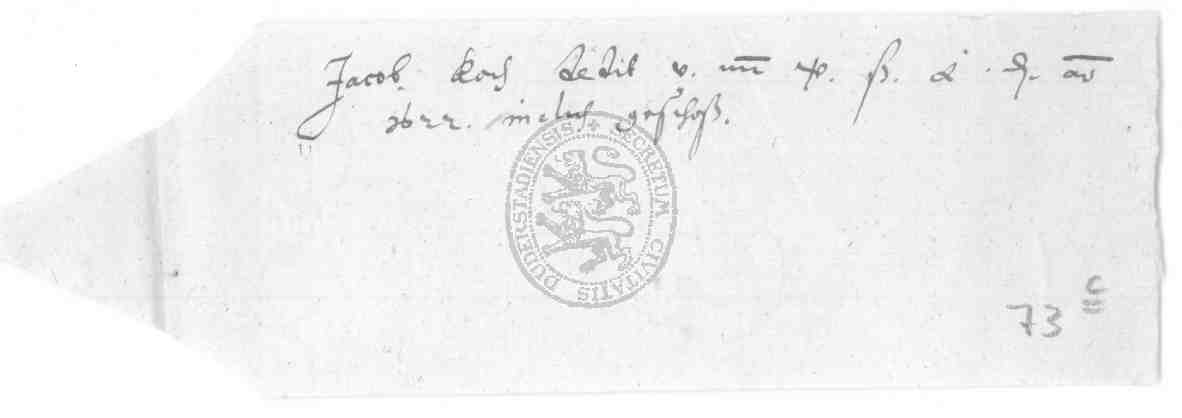 Jacob Koch dedit v. ß. d. ao
1622. geschoß.
SECRETUM CIVITATIS DUDERSTADIENSIS
73 c